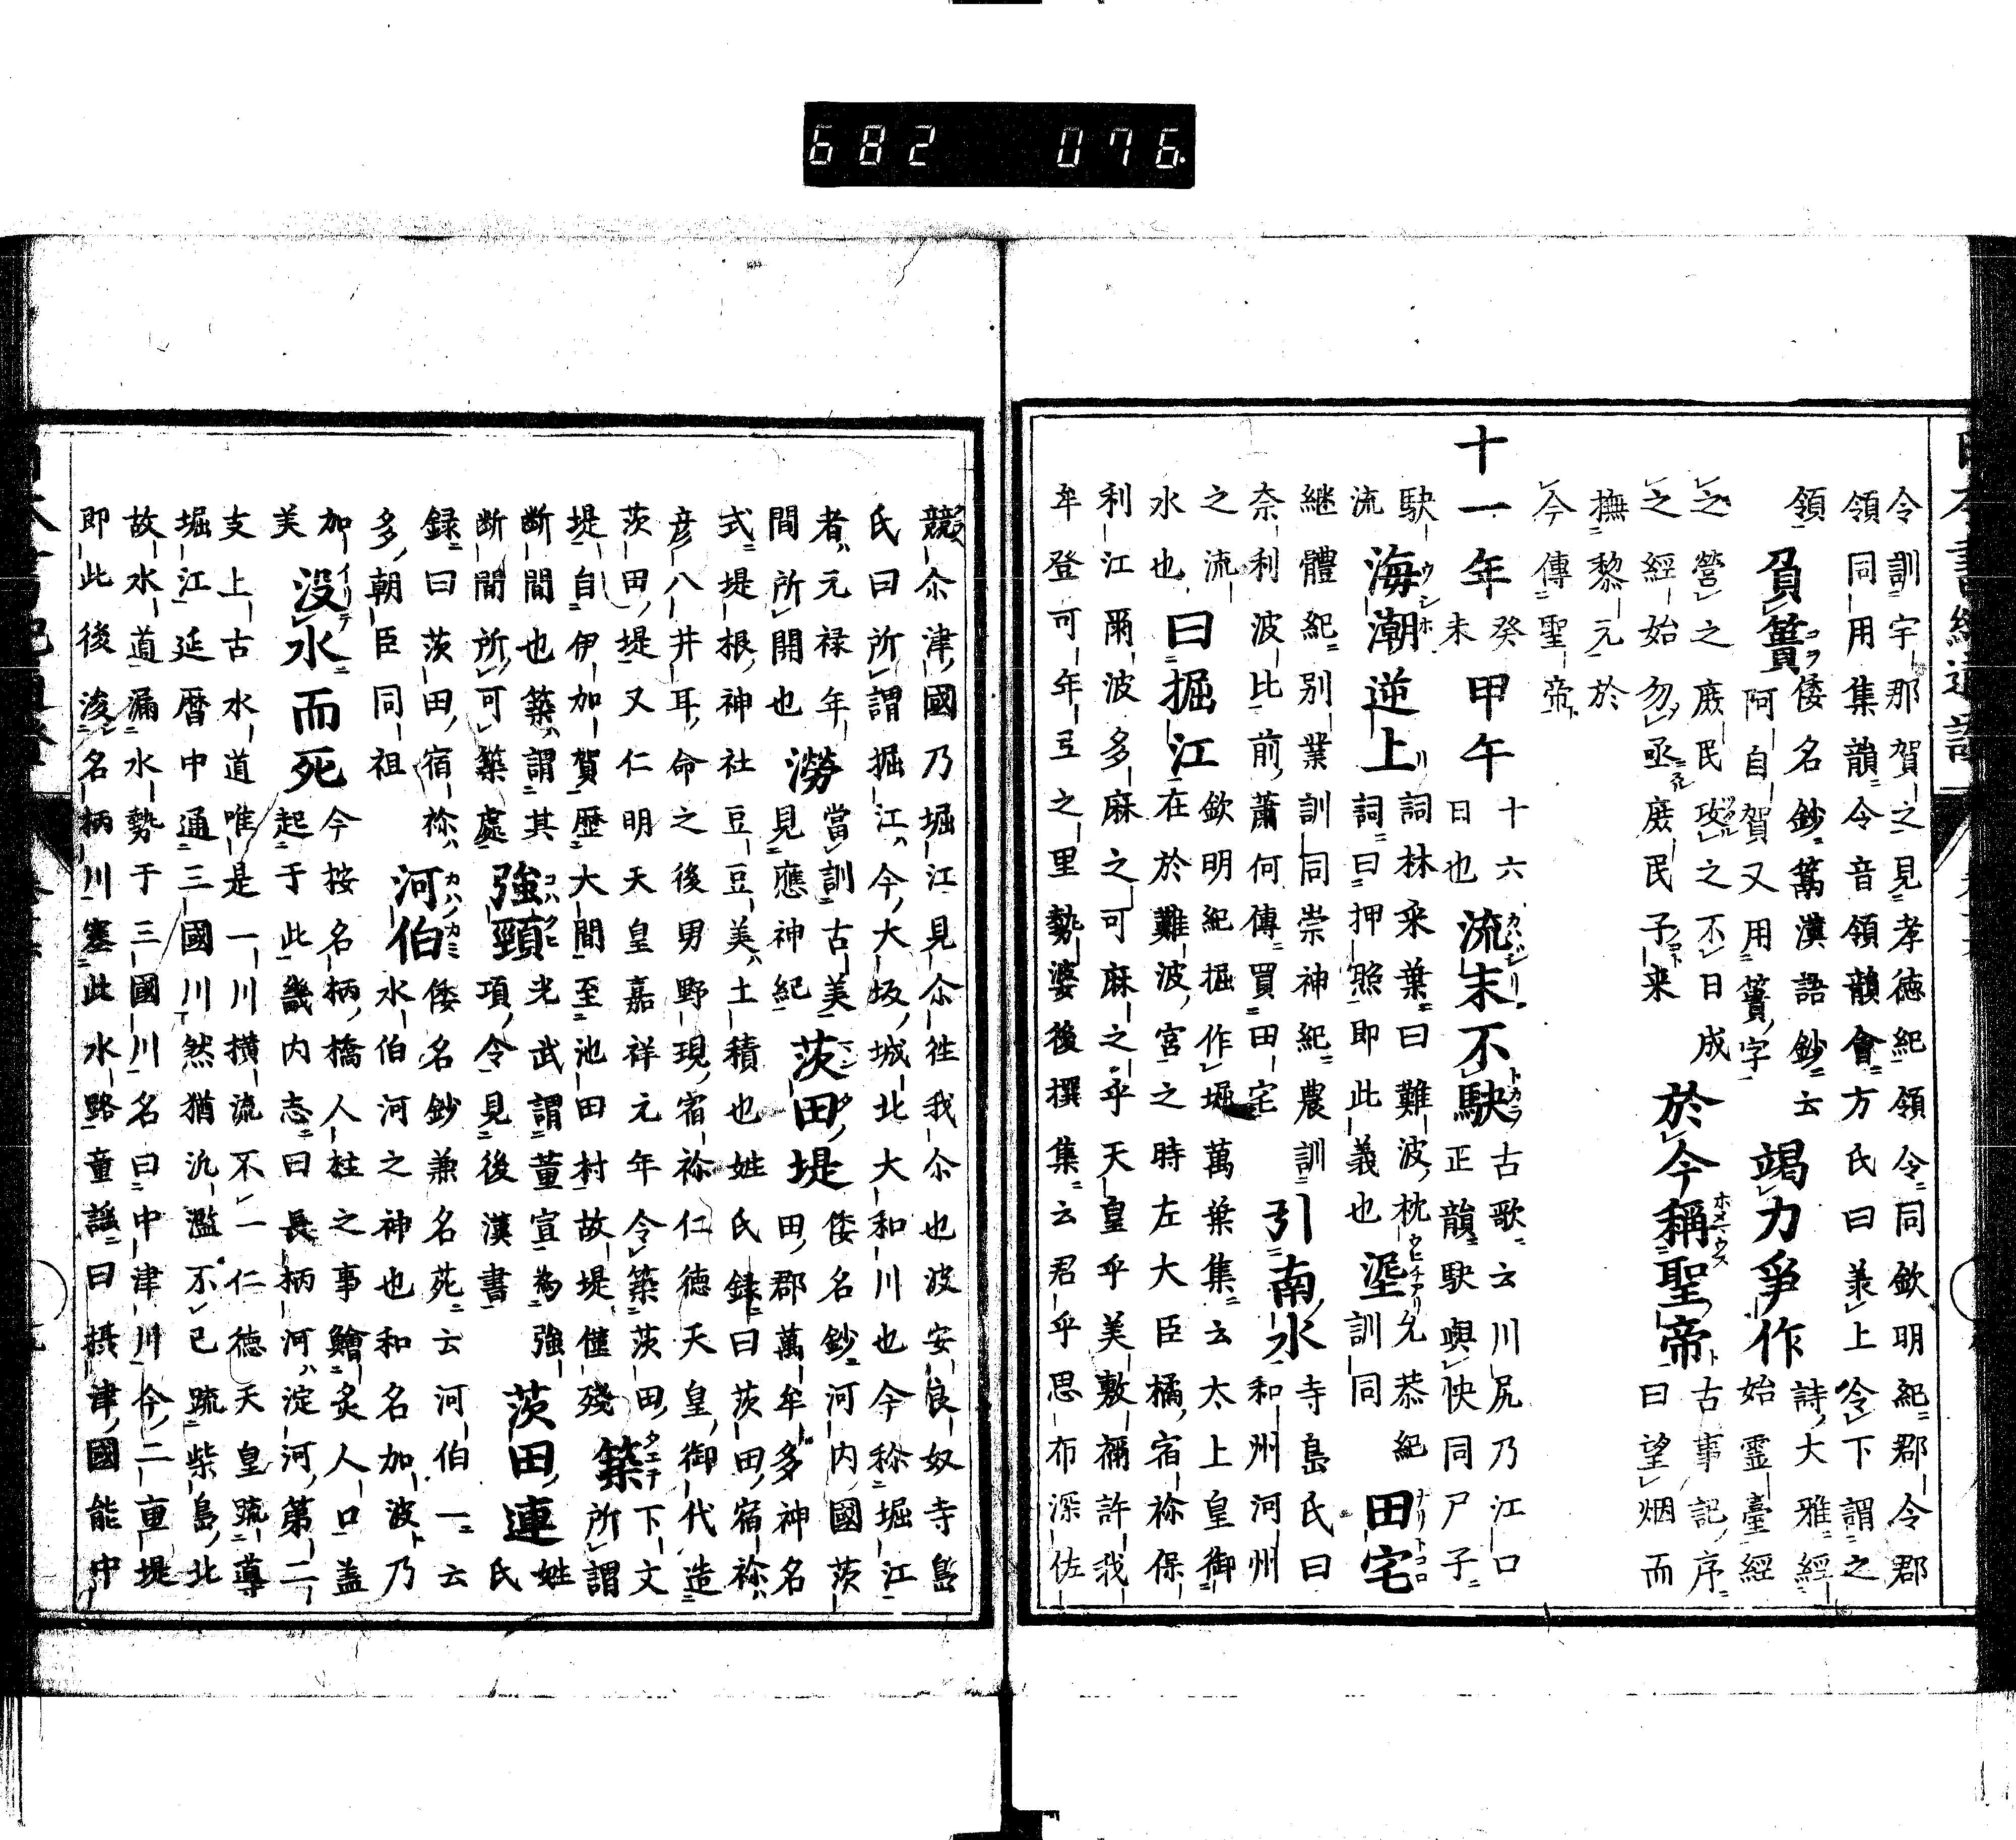 682 076
令訓宇那賀之見孝徳紀領令同欽明紀郡令郡
領同用集韻令音領韻會方氏曰㒵上令下謂之
領 負簣 倭名鈔篝漢語鈔云 阿自賀又用簣字 竭力爭作 詩大雅經 始靈臺經
之營之庶民攻之不日成
之經始勿亟庶民子来 於今稱聖帝 古事記序 曰望烟而
撫黎元於
今傳聖帝
十一年 癸未 甲午 十六日也 流末不駃 古歌云川尻乃江口 正韻駃與快同尸子
駃流 海潮逆上 詞林采葉曰難波枕詞曰押照即此義也 垽 允恭紀訓同 田宅
継體紀別業訓同崇神紀農訓 寺島氏曰
奈利波比前蕭何傳買田宅 引南水 和州河州
之流 欽明紀掘作堀萬葉集云太上皇御
水也 曰掘江 在於難波宮之時左大臣橘宿祢保
利江爾波多麻之可麻之乎天皇乎美敷禰許我
牟登可年弖之里勢婆後撰集云君乎思布深佐
競尒津國乃堀江見尒徃我尒也波安良奴寺島
氏曰所謂掘江今大坂城北大和川也今称堀江
者元禄年間所開也 澇 當訓古美見應神紀 茨田堤 倭名鈔河内國茨田郡萬牟多神名
式堤根神社豆豆美土積也姓氏録曰茨田宿祢
彦八井耳命之後男野現宿祢仁徳天皇御代造
茨田堤又仁明天皇嘉祥元年令築茨田下文
堤自伊加賀歴大間至池田村故堤僅殘 築 所謂
断間也築謂其 強頸 光武謂董宣為強項令見後漢書 茨田連 姓氏
断間所可築處
録曰茨田宿祢 河伯 倭名鈔兼名苑云河伯一云水伯河之神也和名加波乃
多朝臣同祖
加美 没水而死 今按名柄橋人柱之事鱠炙人口盖起于此畿内志曰長柄河ハ淀河第二
支上古水道唯是一川横流不一仁徳天皇疏導
堀江延暦中通三國川然猶汎濫不已疏柴島北
故水道漏水勢于三國川名曰中津川今二重堤
即此後浚名柄川塞此水路童謡曰摂津國能中